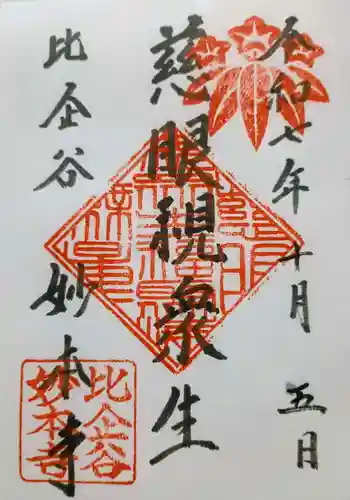 令和七年十月五日
慈眼視衆生
比企谷
妙本寺
比企谷
妙本寺